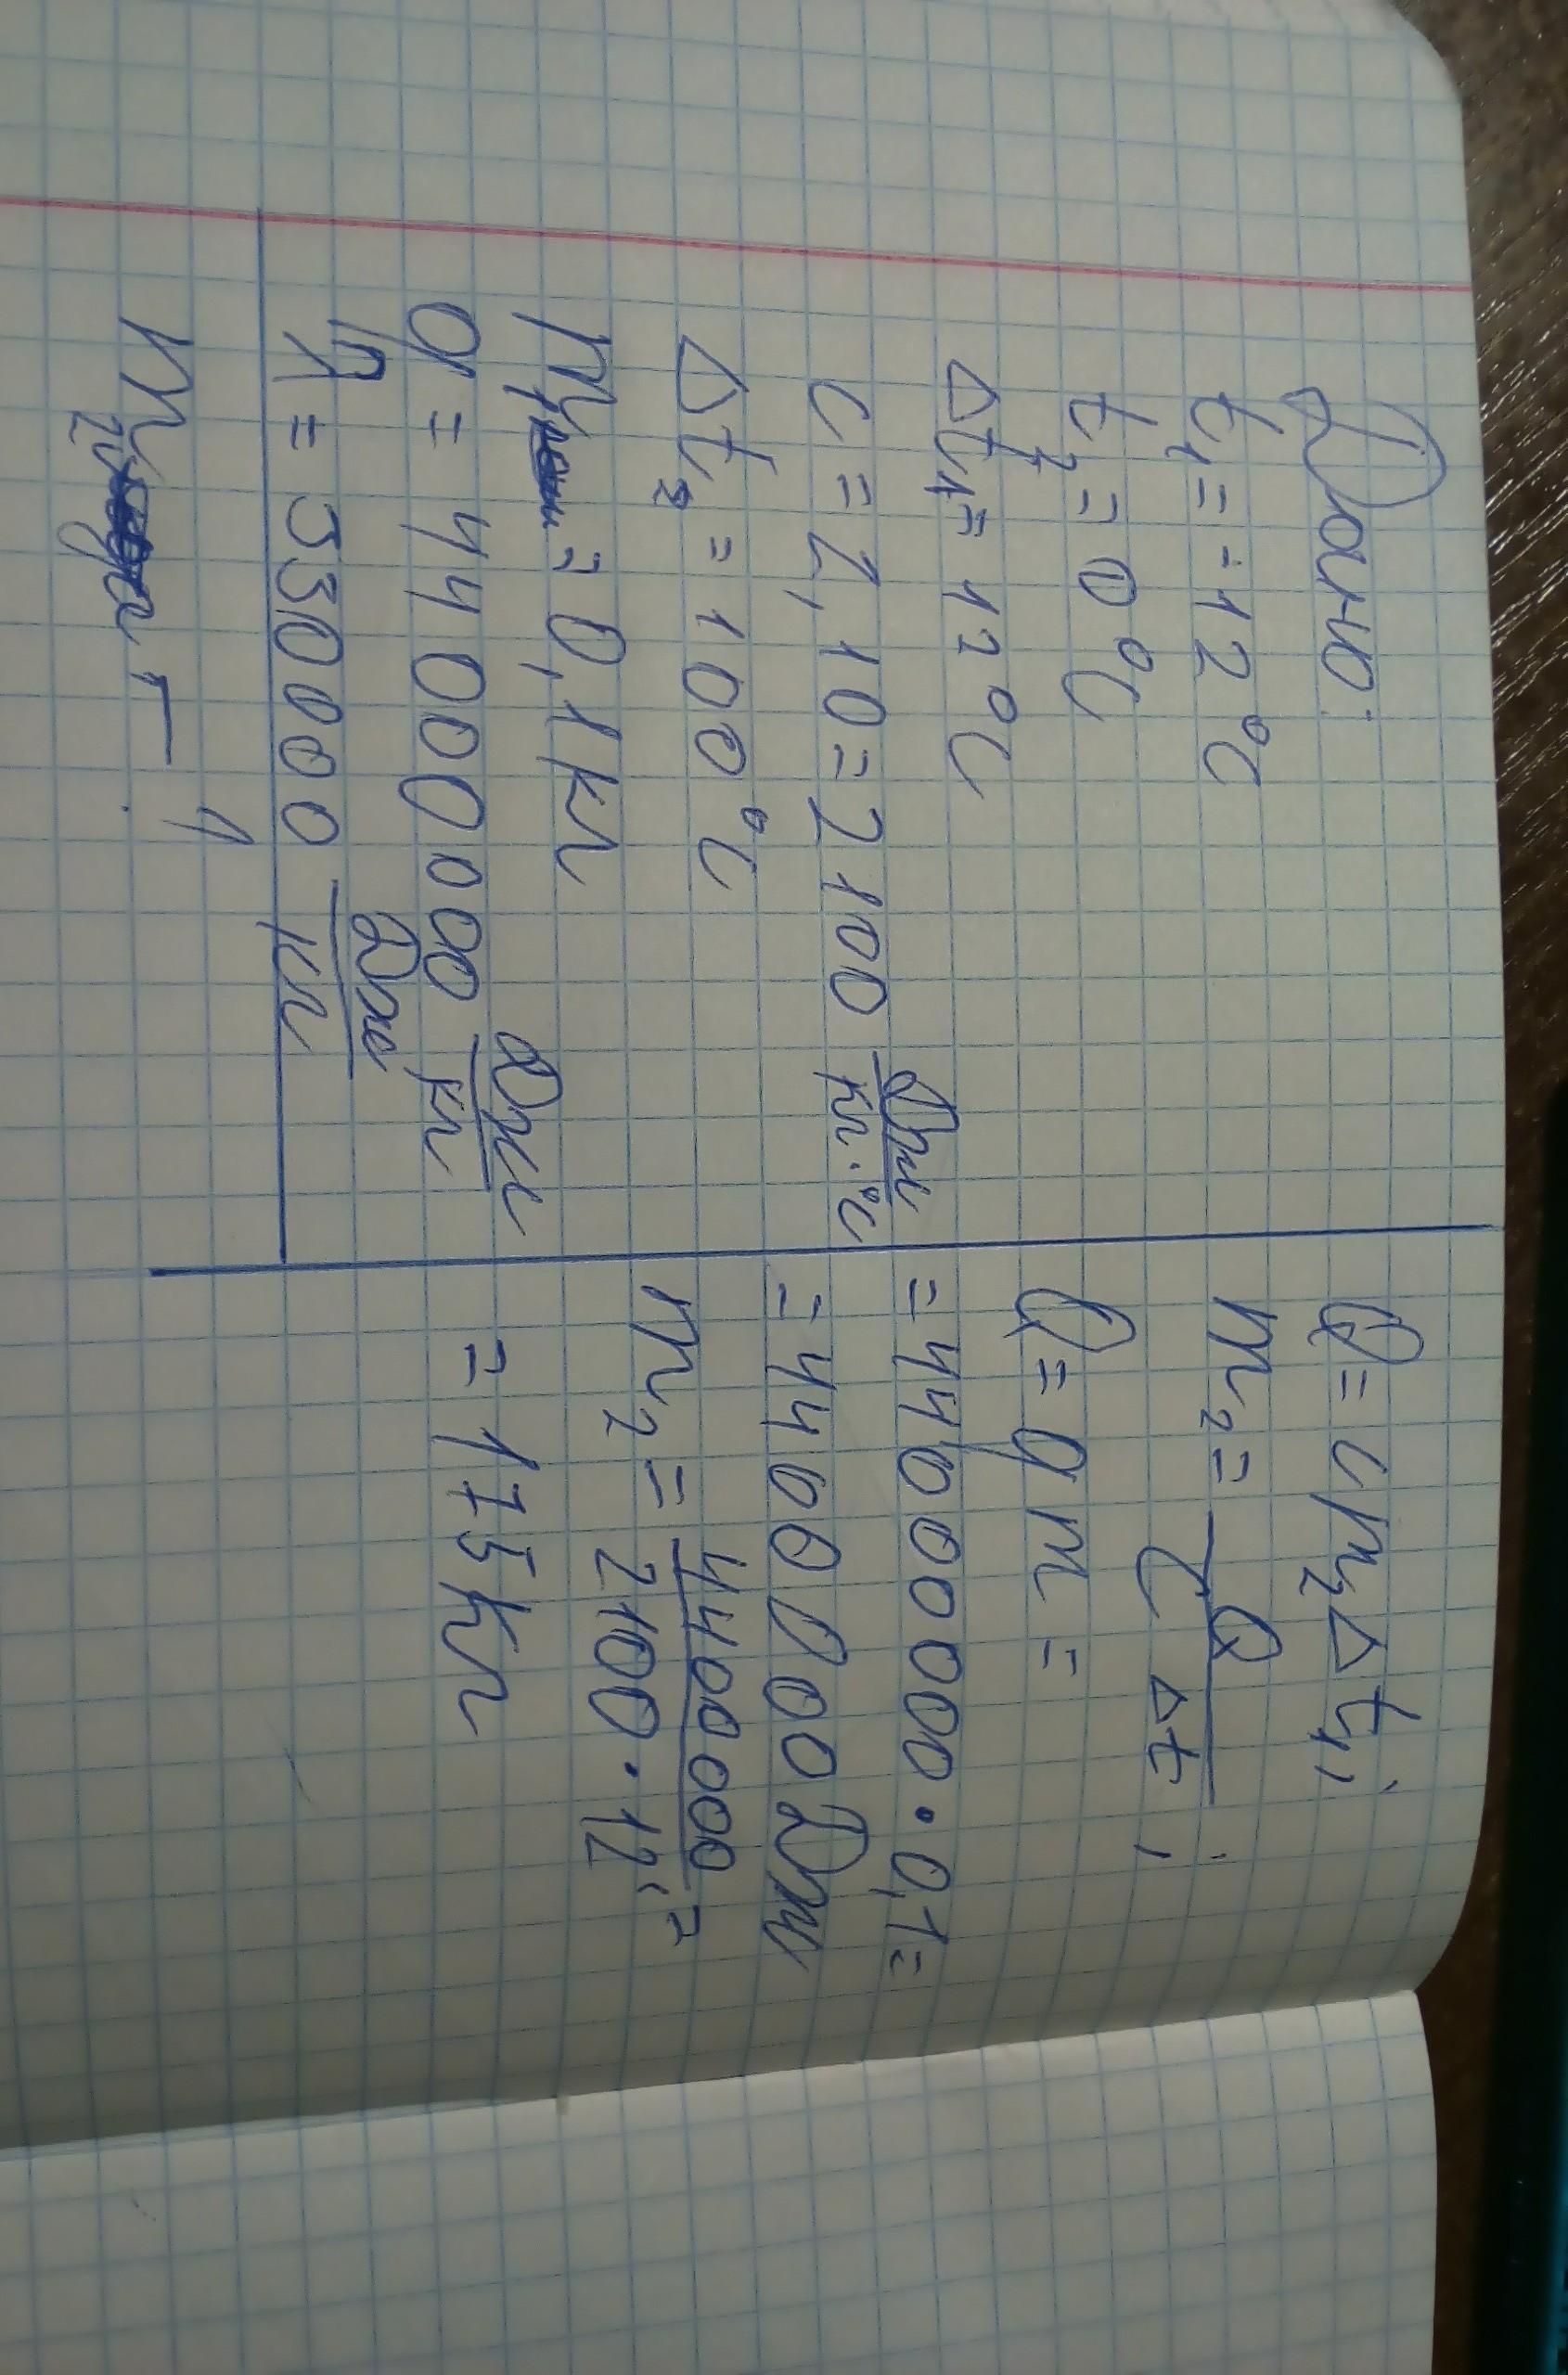 Дано:
t₁ = -12 °C
t₂ = 0 °C
Δt₁ = 12 °C
c = 2,10 = 2100 Дж/кг·°C
Δt₂ = 100 °C
m₁ = 0,1 кг
q = 44000000 Дж/кг
λ = 330000 Дж/кг
m₂ - ?
Q = cm₂Δt₁;
m₂ = Q/cΔt;
Q = qm =
= 44000000 · 0,1 =
= 4400000 Дж
m₂ = 4400000/2100·12 =
= 175 кг